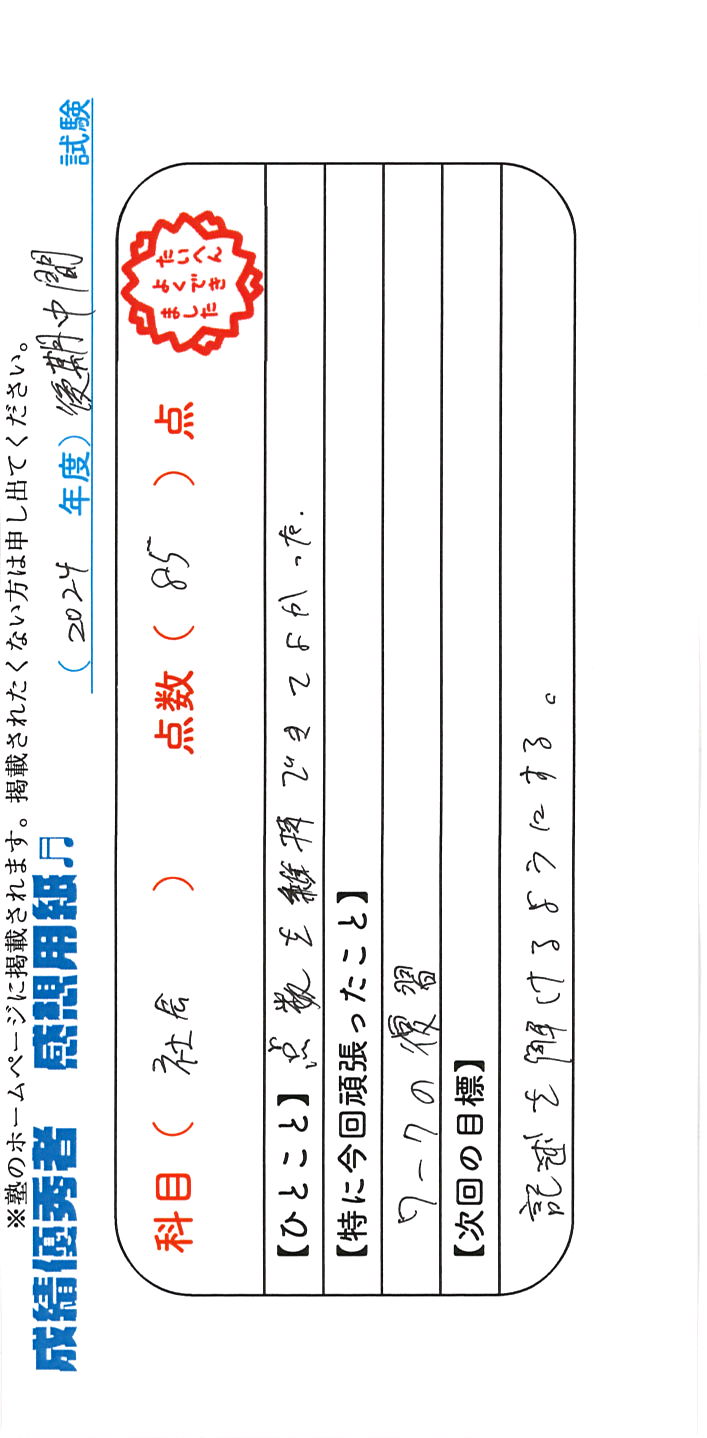 ※塾のホームページに掲載されます。掲載されたくない方は申し出てください。
成績優秀者 感想用紙♬ (2024 年度) 後期中間 試験
科目( 社会 ) 点数( 85 )点
たいへん
よくでき
ました
【ひとこと】点数を維持できてよかった.
【特に今回頑張ったこと】
ワークの復習
【次回の目標】
記述を解けるようにする。